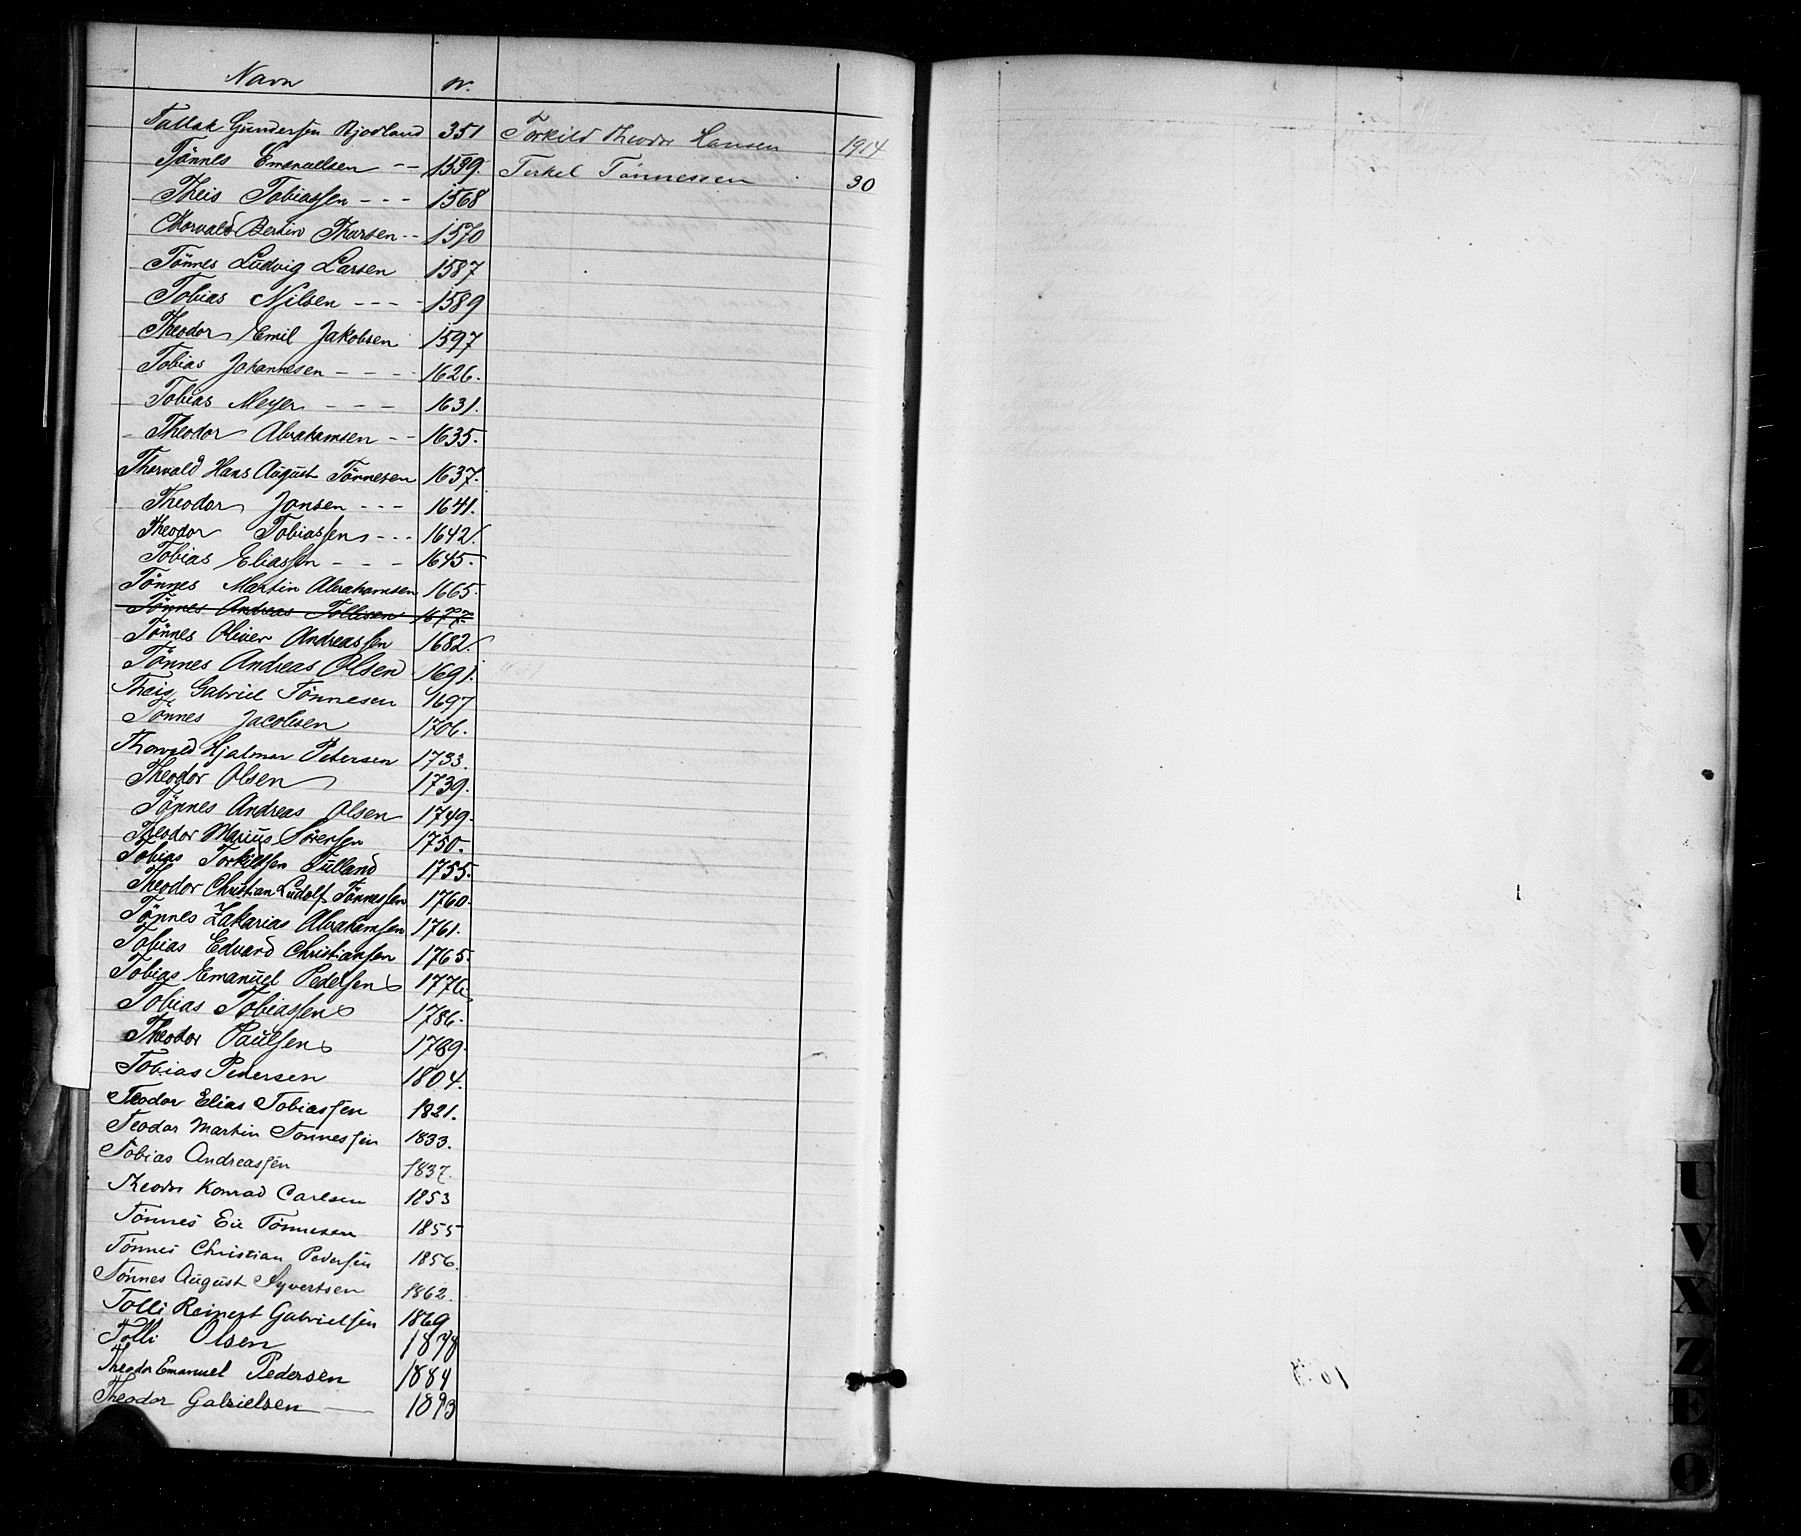 Navn nr.
Tallak Gundersen Bjodland 351
Tönnes Emanuelsen -- 1539.
Theis Tobiassen --- 1568
Thorvald Bertin Thorsen -- 1570
Tönnes Ludvig Larsen 1587
Tobias Nilsen ---- 1589
Theodor Emil Jakobsen 1597
Tobias Johannesen ---- 1626.
Tobias Meyer --- 1631.
Theodor Abrahamsen -- 1635.
Thorvald Hans August Tönnesen 1637.
Theodor Jansen --- 1641.
Theodor Tobiassen --- 1642.
Tobias Eliassen --- 1645.
Tönnes Martin Abrahamsen 1665.
Tönnes Andreas Tollisen 1677.
Tönnes Oliver Andreassen 1682.
Tönnes Andreas Olsen 1691.
Theis Gabriel Tönnesen 1697
Tönnes Jacobsen 1706.
Thorvald Hjalmar Petersen 1733.
Theodor Olsen 1739.
Tönnes Andreas Olsen 1749.
Theodor Marius Sörensen 1750.
Tobias Torkildsen Tulland 1755.
Theodor Christian Ludolf Tönnessen 1760.
Tönnes Zakarias Abrahamsen 1761.
Tobias Edvard Christiansen 1765.
Tobias Emanuel Pedersen 1776.
Tobias Tobiassen 1786.
Theodor Paulsen 1789.
Tobias Pedersen 1804.
Teodor Elias Tobiassen 1821.
Teodor Martin Tonnessen 1833.
Tobias Andreassen 1837.
Theodor Konrad Carlsen 1853
Tønnes Eie Tønnesen 1855
Tønnes Christian Pedersen 1856.
Tønnes August Syvertsen 1862.
Tolli Reinert Gabrielsen 1869
Tolli Olsen 1878
Theodor Emanuel Pedersen 1884
Theodor Gabrielsen 1893
Torkild Theodor Hansen 1914
Terkel Tønnessen 30
U
V
X
Z
Æ
Ø